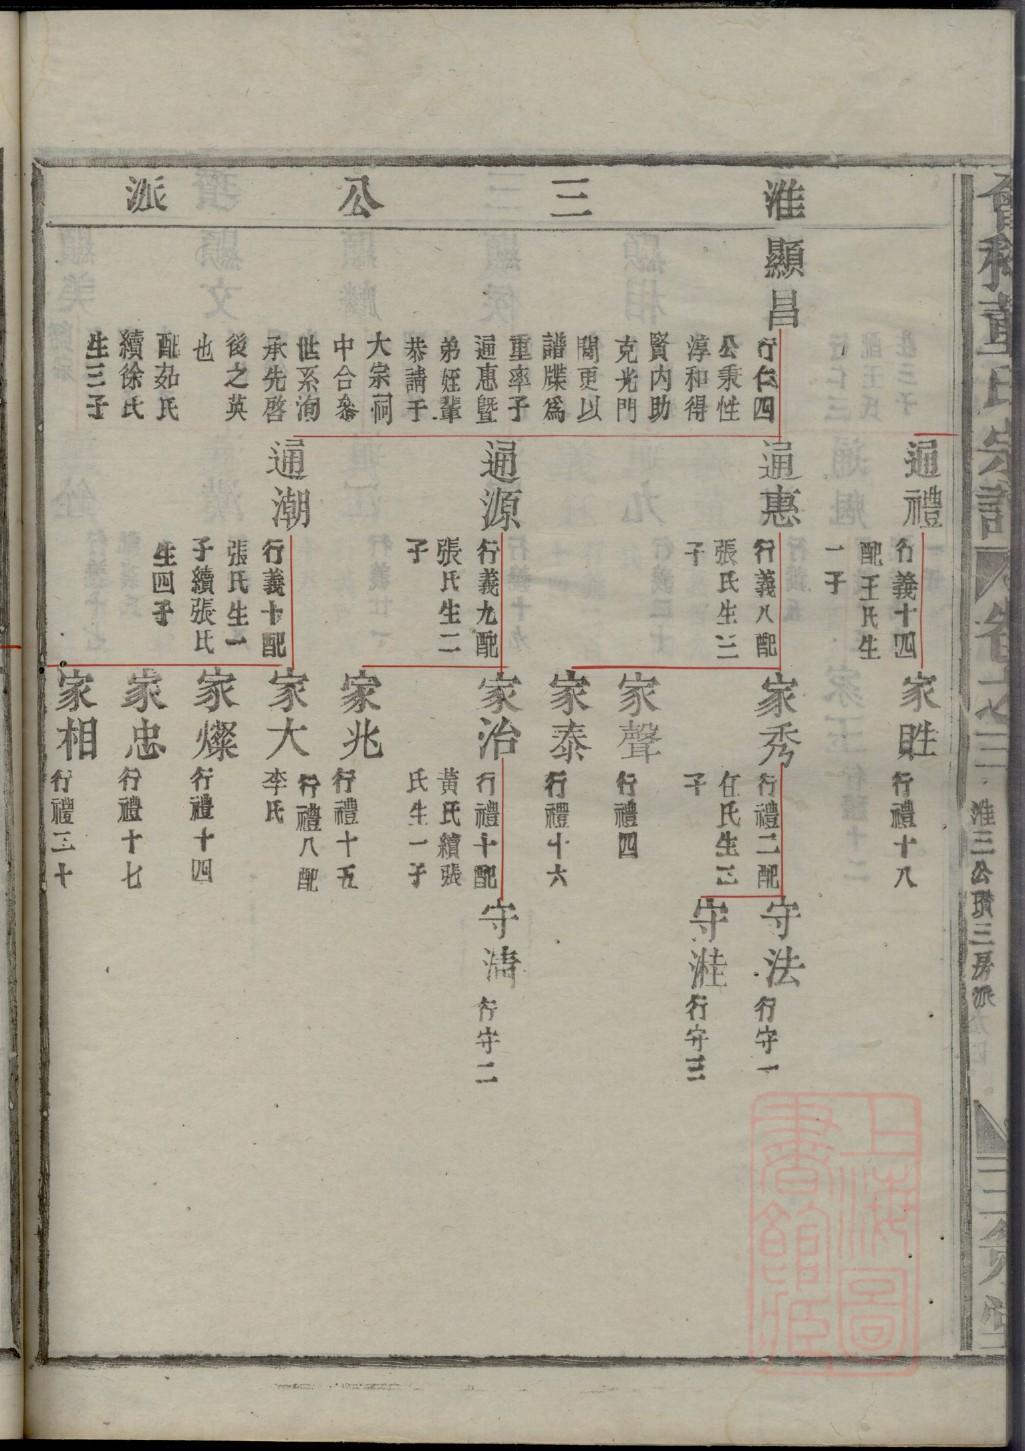 淮三公派
通禮
行義十四
配王氏生
一子
家甠
行禮十八
顯昌
行仁四
公秉性
淳和得
賢内助
克光門
閭更以
譜牒爲
重率子
通惠曁
弟姪輩
恭請于
大宗祠
中合叅
世系洵
承先啓
後之英
也
配茹氏
續徐氏
生三子
通惠
行義八配
張氏生三
子
家秀
行禮二配
任氏生二
子
守法
行守一
守溎
行守三
家聲
行禮四
家泰
行禮十六
通源
行義九配
張氏生二
子
家治
行禮十配
黄氏續張
氏生一子
守淸
行守二
家兆
行禮十五
通潮
行義十配
張氏生一
子續張氏
生四子
家大
行禮八配
李氏
家燦
行禮十四
家忠
行禮十七
家相
行禮三十
會稽董氏宗譜
卷之三
淮三公瓚三房派
三策堂
上海圖書館藏